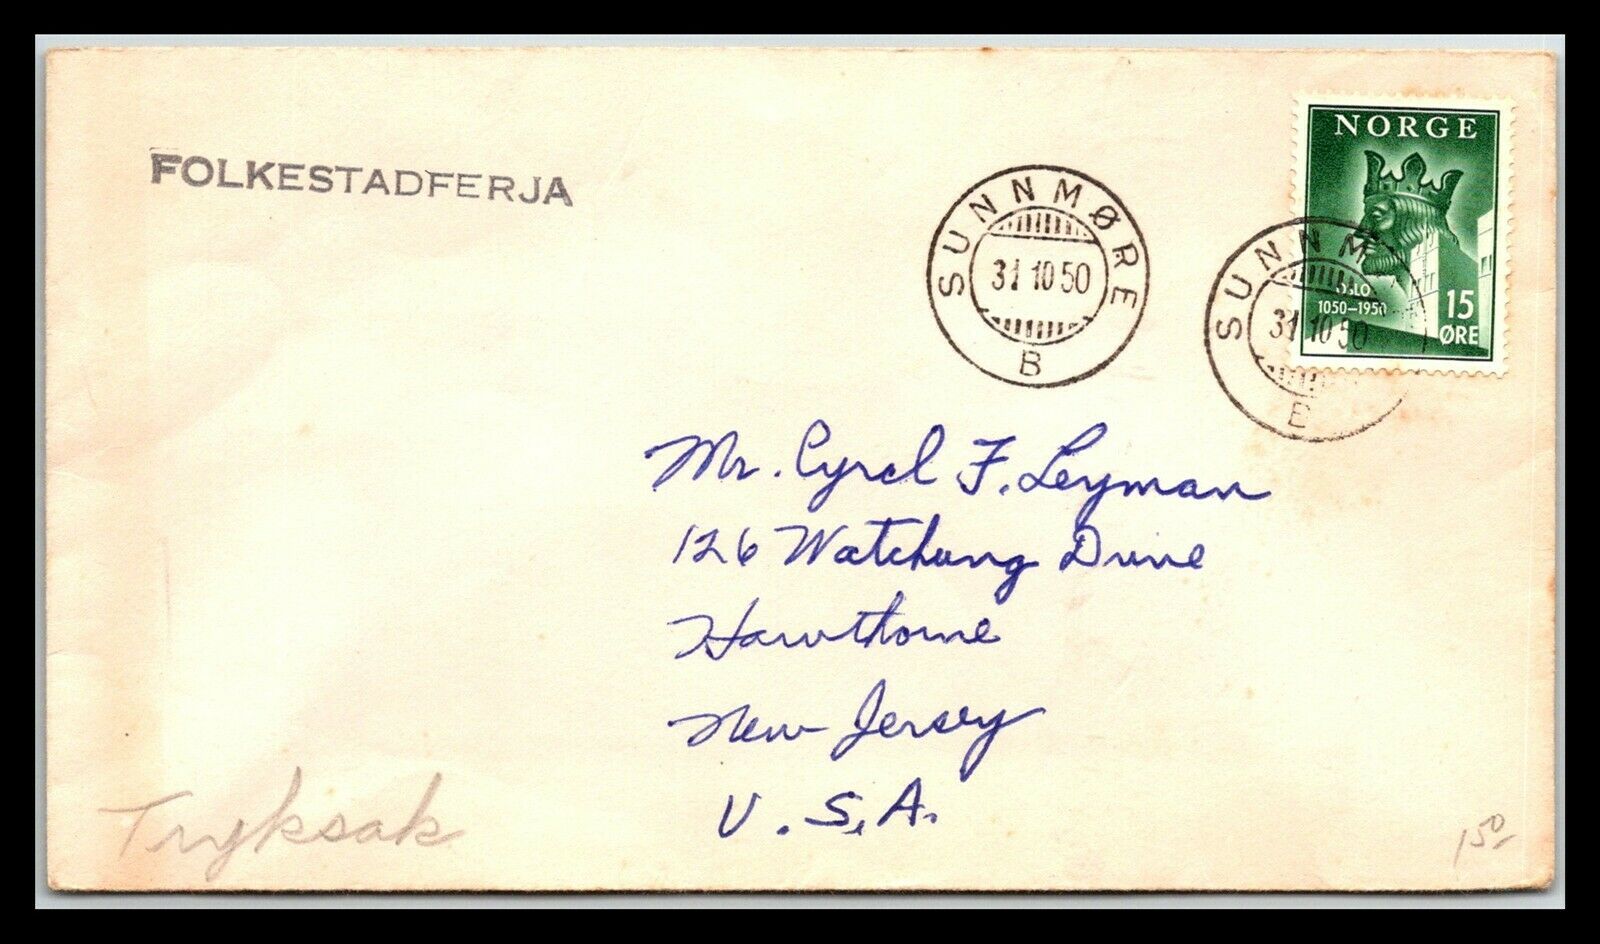 FOLKESTADFERJA
NORGE
OSLO
1050-1950
15
ØRE
SUNNMØRE
31 10 50
B
SUNNM
31 10 50
B
Mr. Cyrel F. Leyman
126 Watchung Drive
Hawthorne
New Jersey
U.S.A.
Tryksak
150